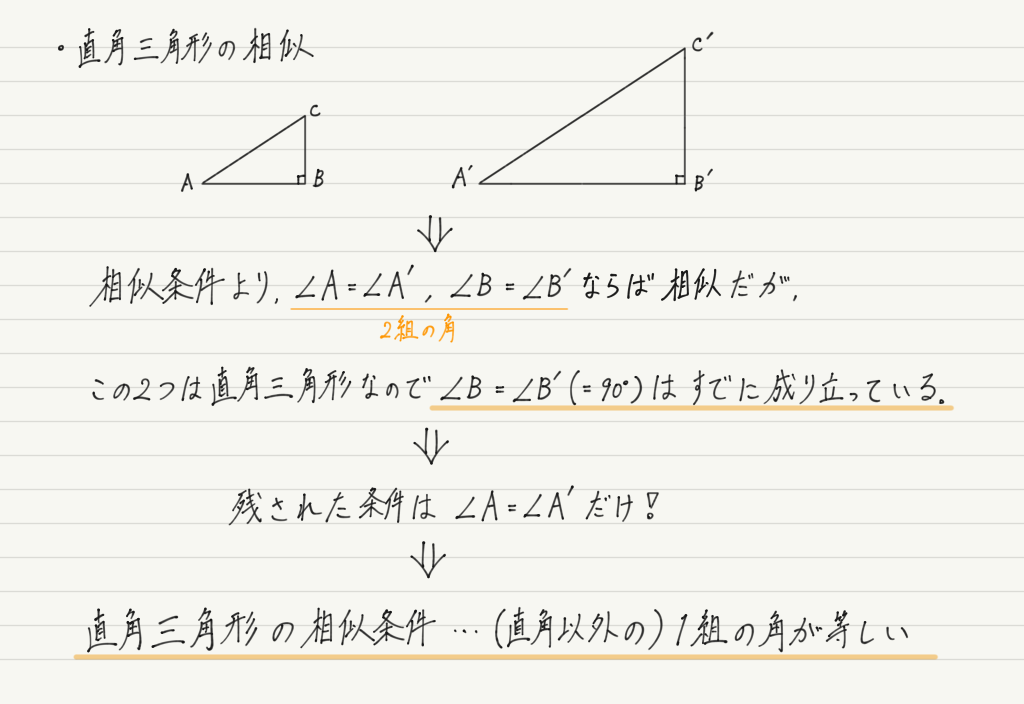 ・直角三角形の相似
C
A
B
C′
A′
B′
⇓
相似条件より, ∠A=∠A′, ∠B=∠B′ ならば相似だが,
2組の角
この2つは直角三角形なので∠B=∠B′(=90°)はすでに成り立っている.
⇓
残された条件は ∠A=∠A′ だけ!
⇓
直角三角形の相似条件…(直角以外の)1組の角が等しい